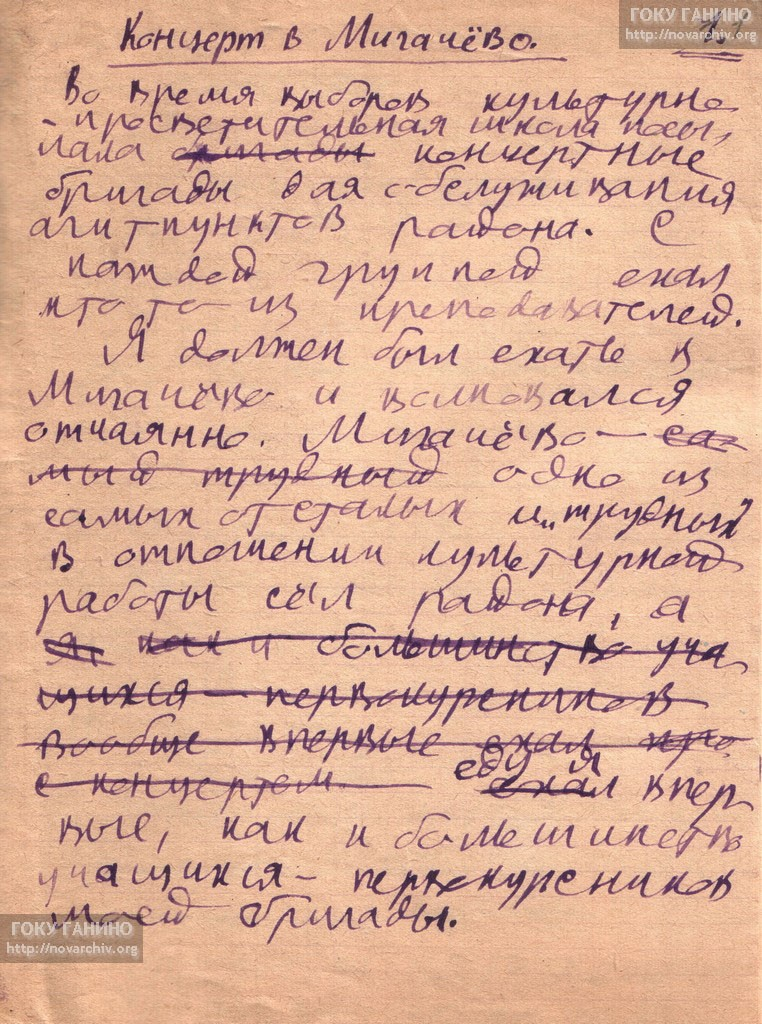 ГОКУ ГАНИНО
http://novarchiv.org
Концерт в Мигачёво.
Во время выборов культурно
- просветительная школа посы-
лала бригады концертные
бригады для обслуживания
агитпунктов района. С
каждой группой ехал
кто то из преподавателей.
Я должен был ехать в
Мигачёво и волновался
отчаянно. Мигачёво — са-
мый трудный одно из
самых отсталых и „трудных"
в отношении культурной
работы сёл района, а
я, как и большинство уча-
щихся — первокурсников
вообще впервые ехал
с концертом. еду я ехал впер-
вые, как и большинство
учащихся — первокурсников
моей бригады.
ГОКУ ГАНИНО
http://novarchiv.org